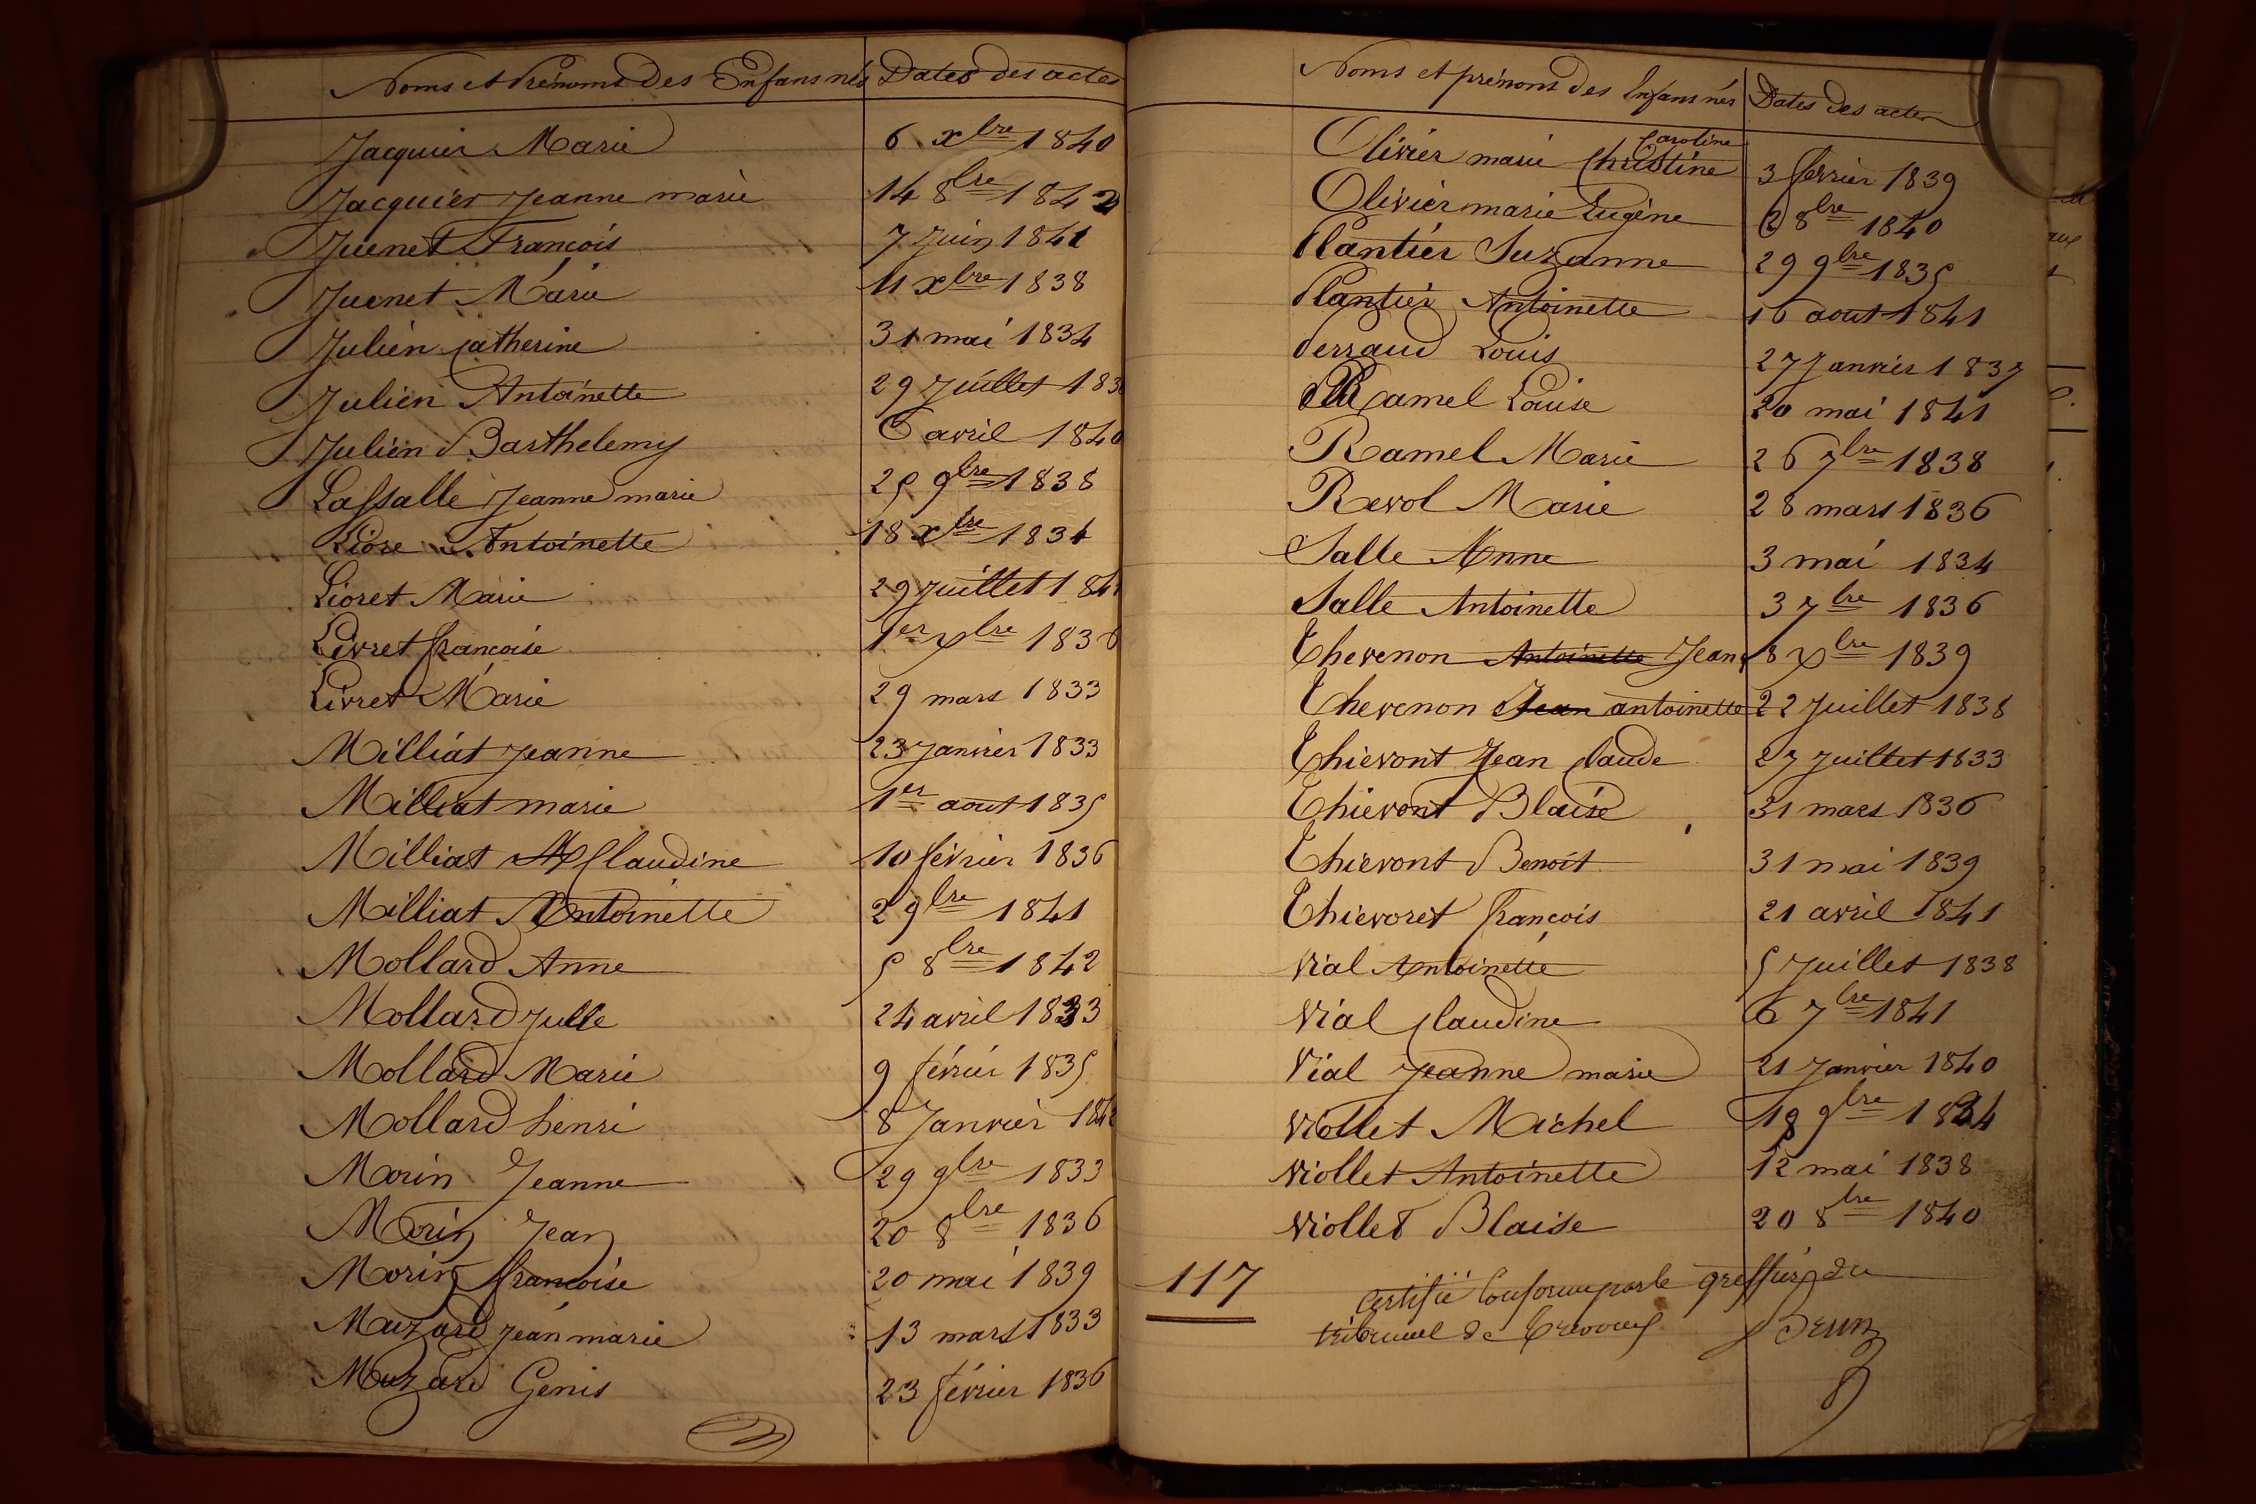 Noms et Prénoms des Enfans nés Dates des actes
Jacquier Marie 6 xbre 1840
Jacquier Jeanne marie 14 8bre 1842
Juenet François 7 Juin 1841
Juenet Marie 11 xbre 1838
Julien Catherine 31 mai 1834
Julien Antoinette 29 Juillet 183
Julien Barthelemy 6 avril 1840
Lassalle Jeanne marie 25 9bre 1838
Liore Antoinette 18 xbre 1834
Lioret Marie 29 Juillet 1841
Livret françoise 1er xbre 1836
Livret Marie 29 mars 1833
Milliat Jeanne 23 Janvier 1833
Milliat marie 1er aout 1835
Milliat Claudine 10 février 1836
Milliat Antoinette 2 9bre 1841
Mollard Anne 5 8bre 1842
Mollard Julie 24 avril 1833
Mollard Marie 9 février 1835
Mollard henri 8 Janvier 184
Morin Jeanne 29 9bre 1833
Morin Jean 20 8bre 1836
Morin françoise 20 mai 1839
Muzard Jean marie 13 mars 1833
Muzard Genis 23 février 1836
Noms et prénons des Enfans nés Dates des actes
Caroline
Olivier marie Christine 3 fevrier 1839
Olivier marie Eugène 2 8bre 1840
Plantier Suzanne 29 9bre 1835
Plantier Antoinette 16 aout 1841
Perraud Louis 27 Janvier 1837
Ramel Louise 20 mai 1841
Ramel Marie 26 7bre 1838
Revol Marie 28 mars 1836
Salle Anne 3 mai 1834
Salle Antoinette 3 7bre 1836
Thevenon Antoinette Jean 8 xbre 1839
Thevenon Jean antoinette 22 Juillet 1838
Thievont Jean Claude 27 Juillet 1833
Thievont Blaise 31 mars 1836
Thievont Benoit 31 mai 1839
Thievoret françois 21 avril 1841
Vial Antoinette 5 Juillet 1838
Vial Claudine 6 7bre 1841
Vial Jeanne marie 21 Janvier 1840
Viollet Michel 18 9bre 1834
Viollet Antoinette 12 mai 1838
Viollet Blaise 20 8bre 1840
117
Certifié Conforme par le greffier du
tribunal de Trevoux